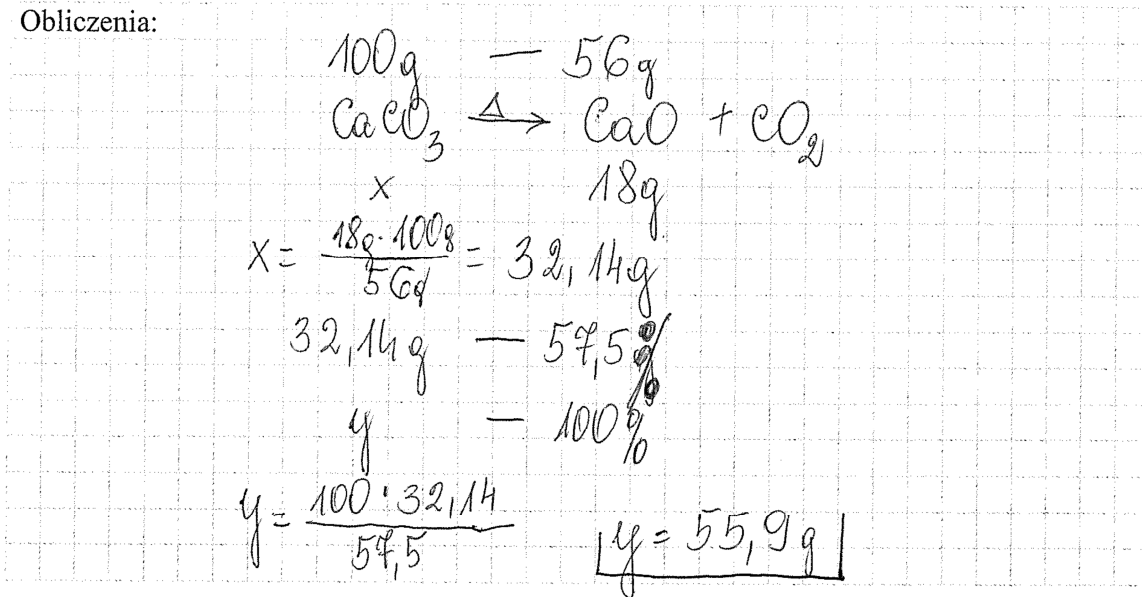 Obliczenia:
100g — 56g
CaCO₃ —Δ→ CaO + CO₂
x 18g
x = 18g · 100g / 56g = 32,14g
32,14g — 57,5%
y — 100%
y = 100 · 32,14 / 57,5
y = 55,9g